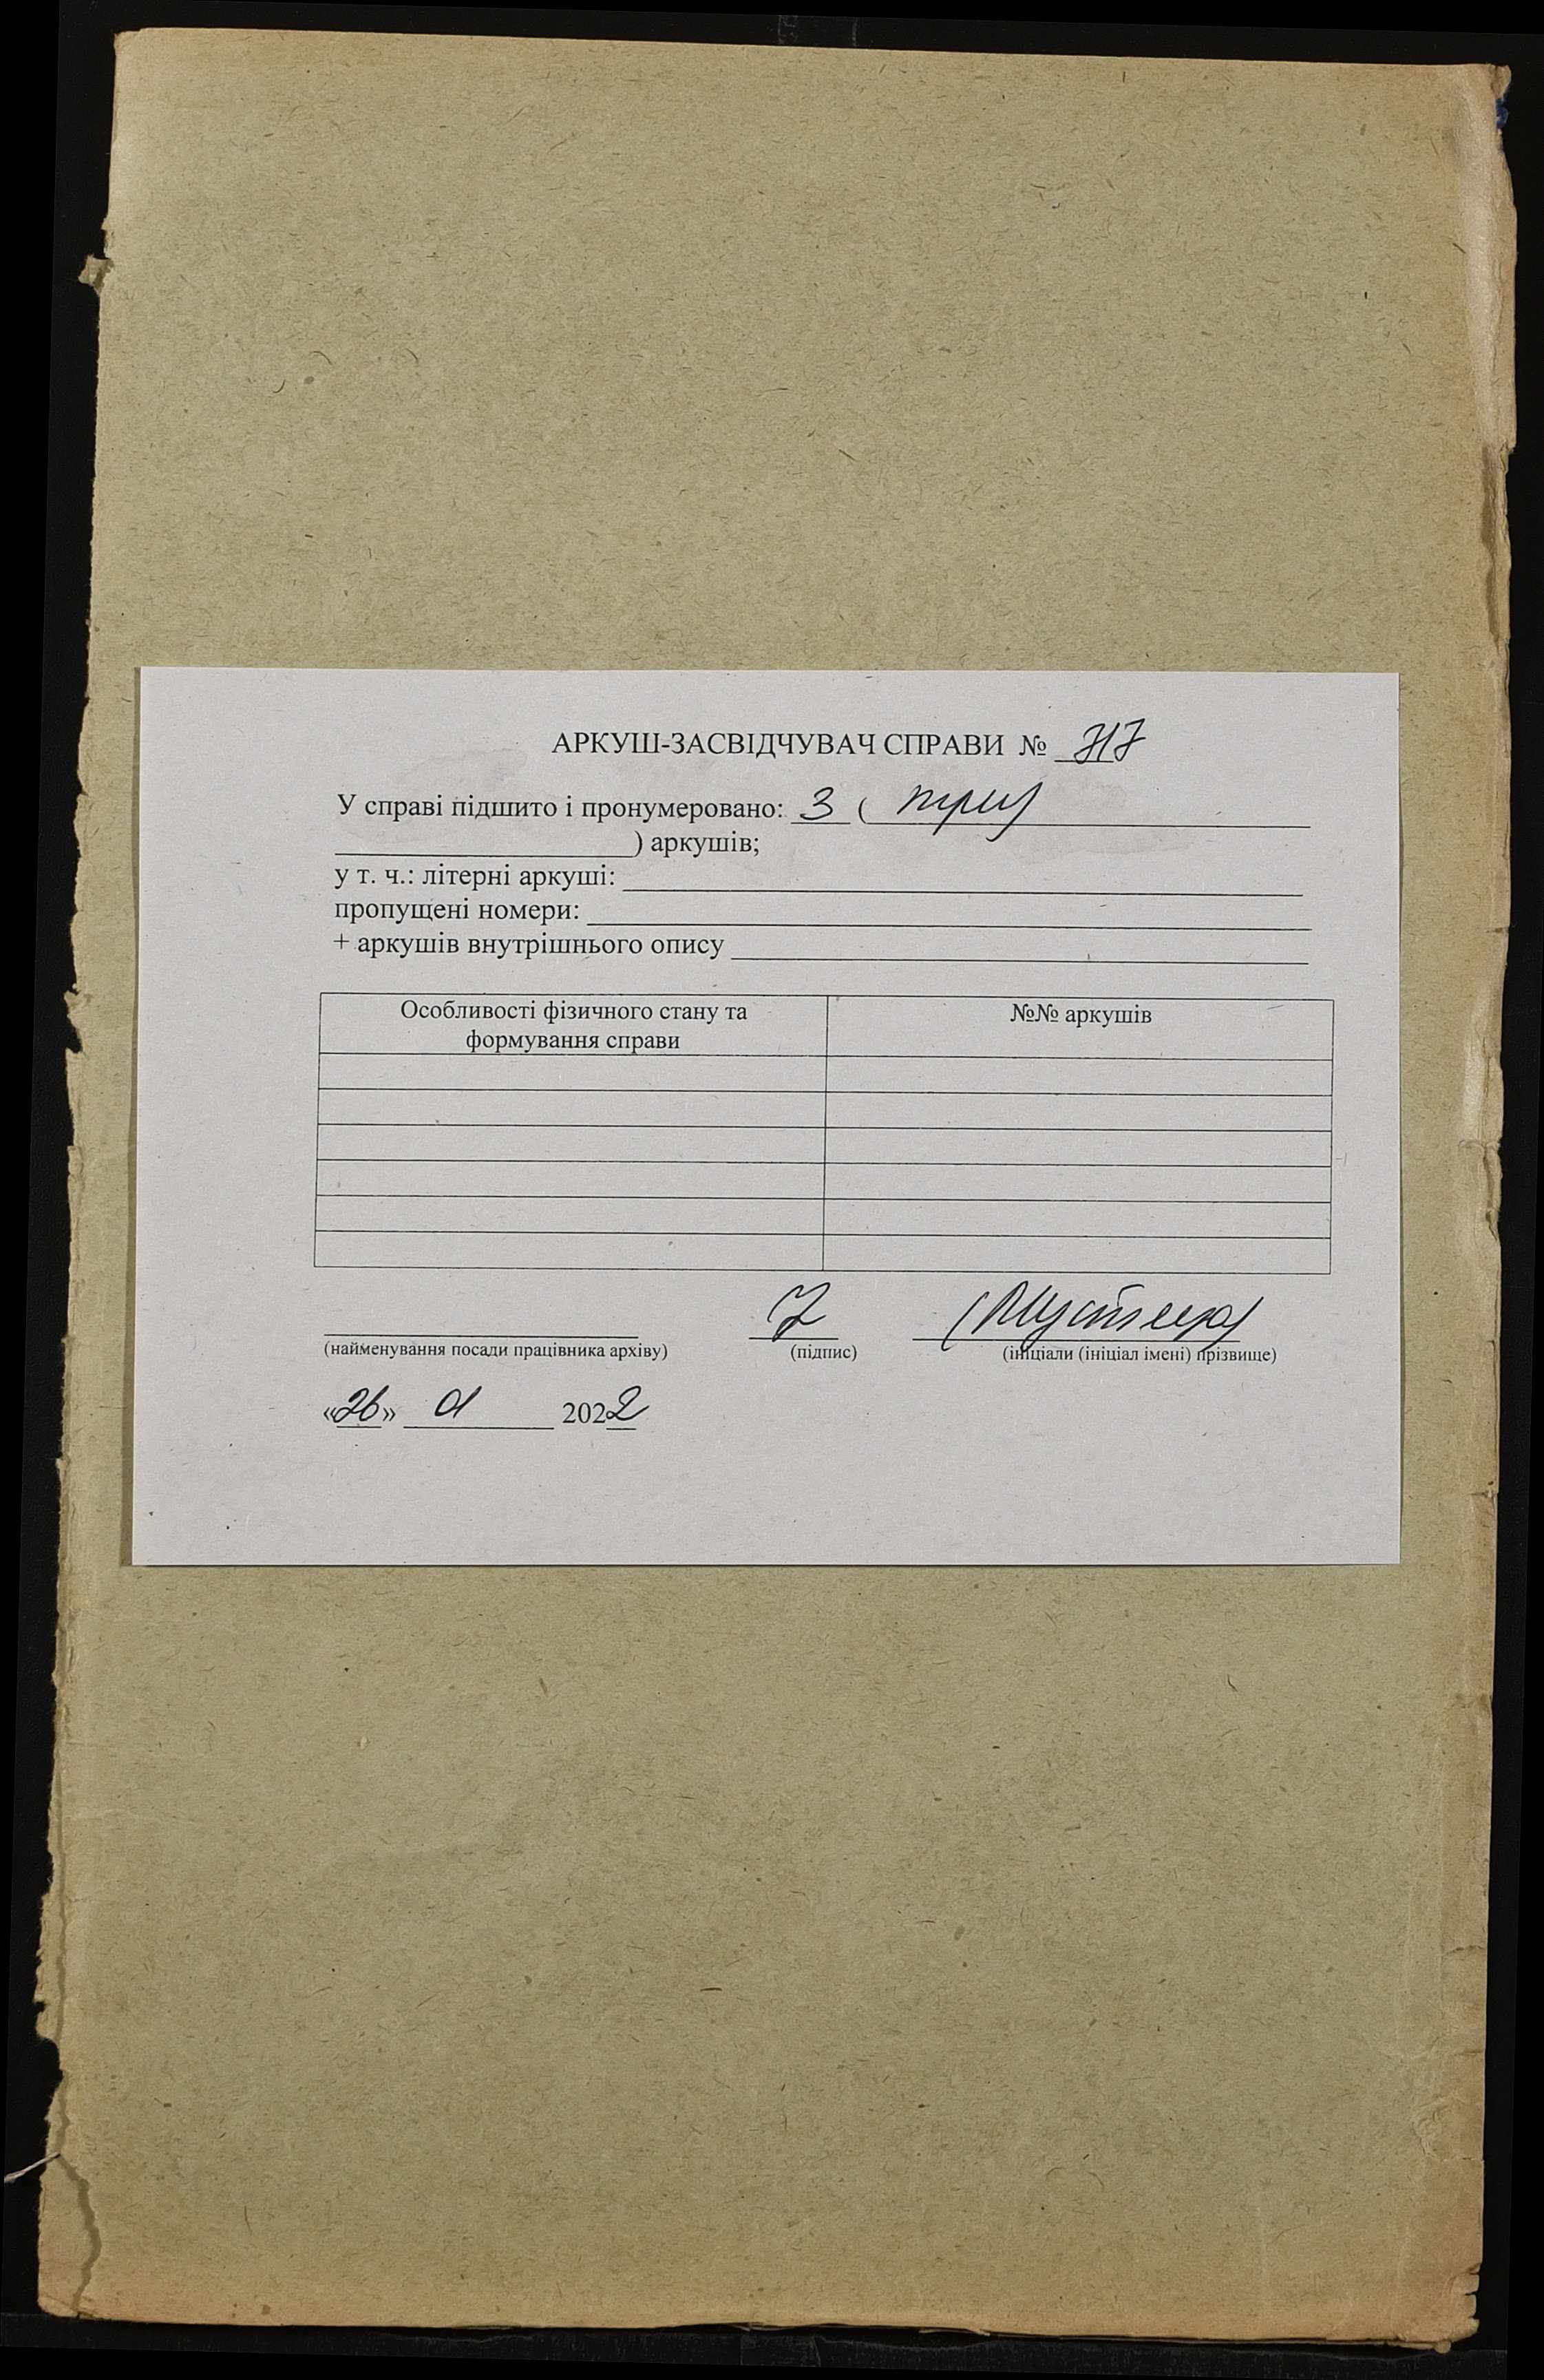 АРКУШ-ЗАСВІДЧУВАЧ СПРАВИ № 717
У справі підшито і пронумеровано: 3 ( три
) аркушів;
у т. ч.: літерні аркуші:
пропущені номери:
+ аркушів внутрішнього опису
Особливості фізичного стану та
формування справи
№№ аркушів
(найменування посади працівника архіву) (підпис) (ініціали (ініціал імені) прізвище)
«26» 01 2022